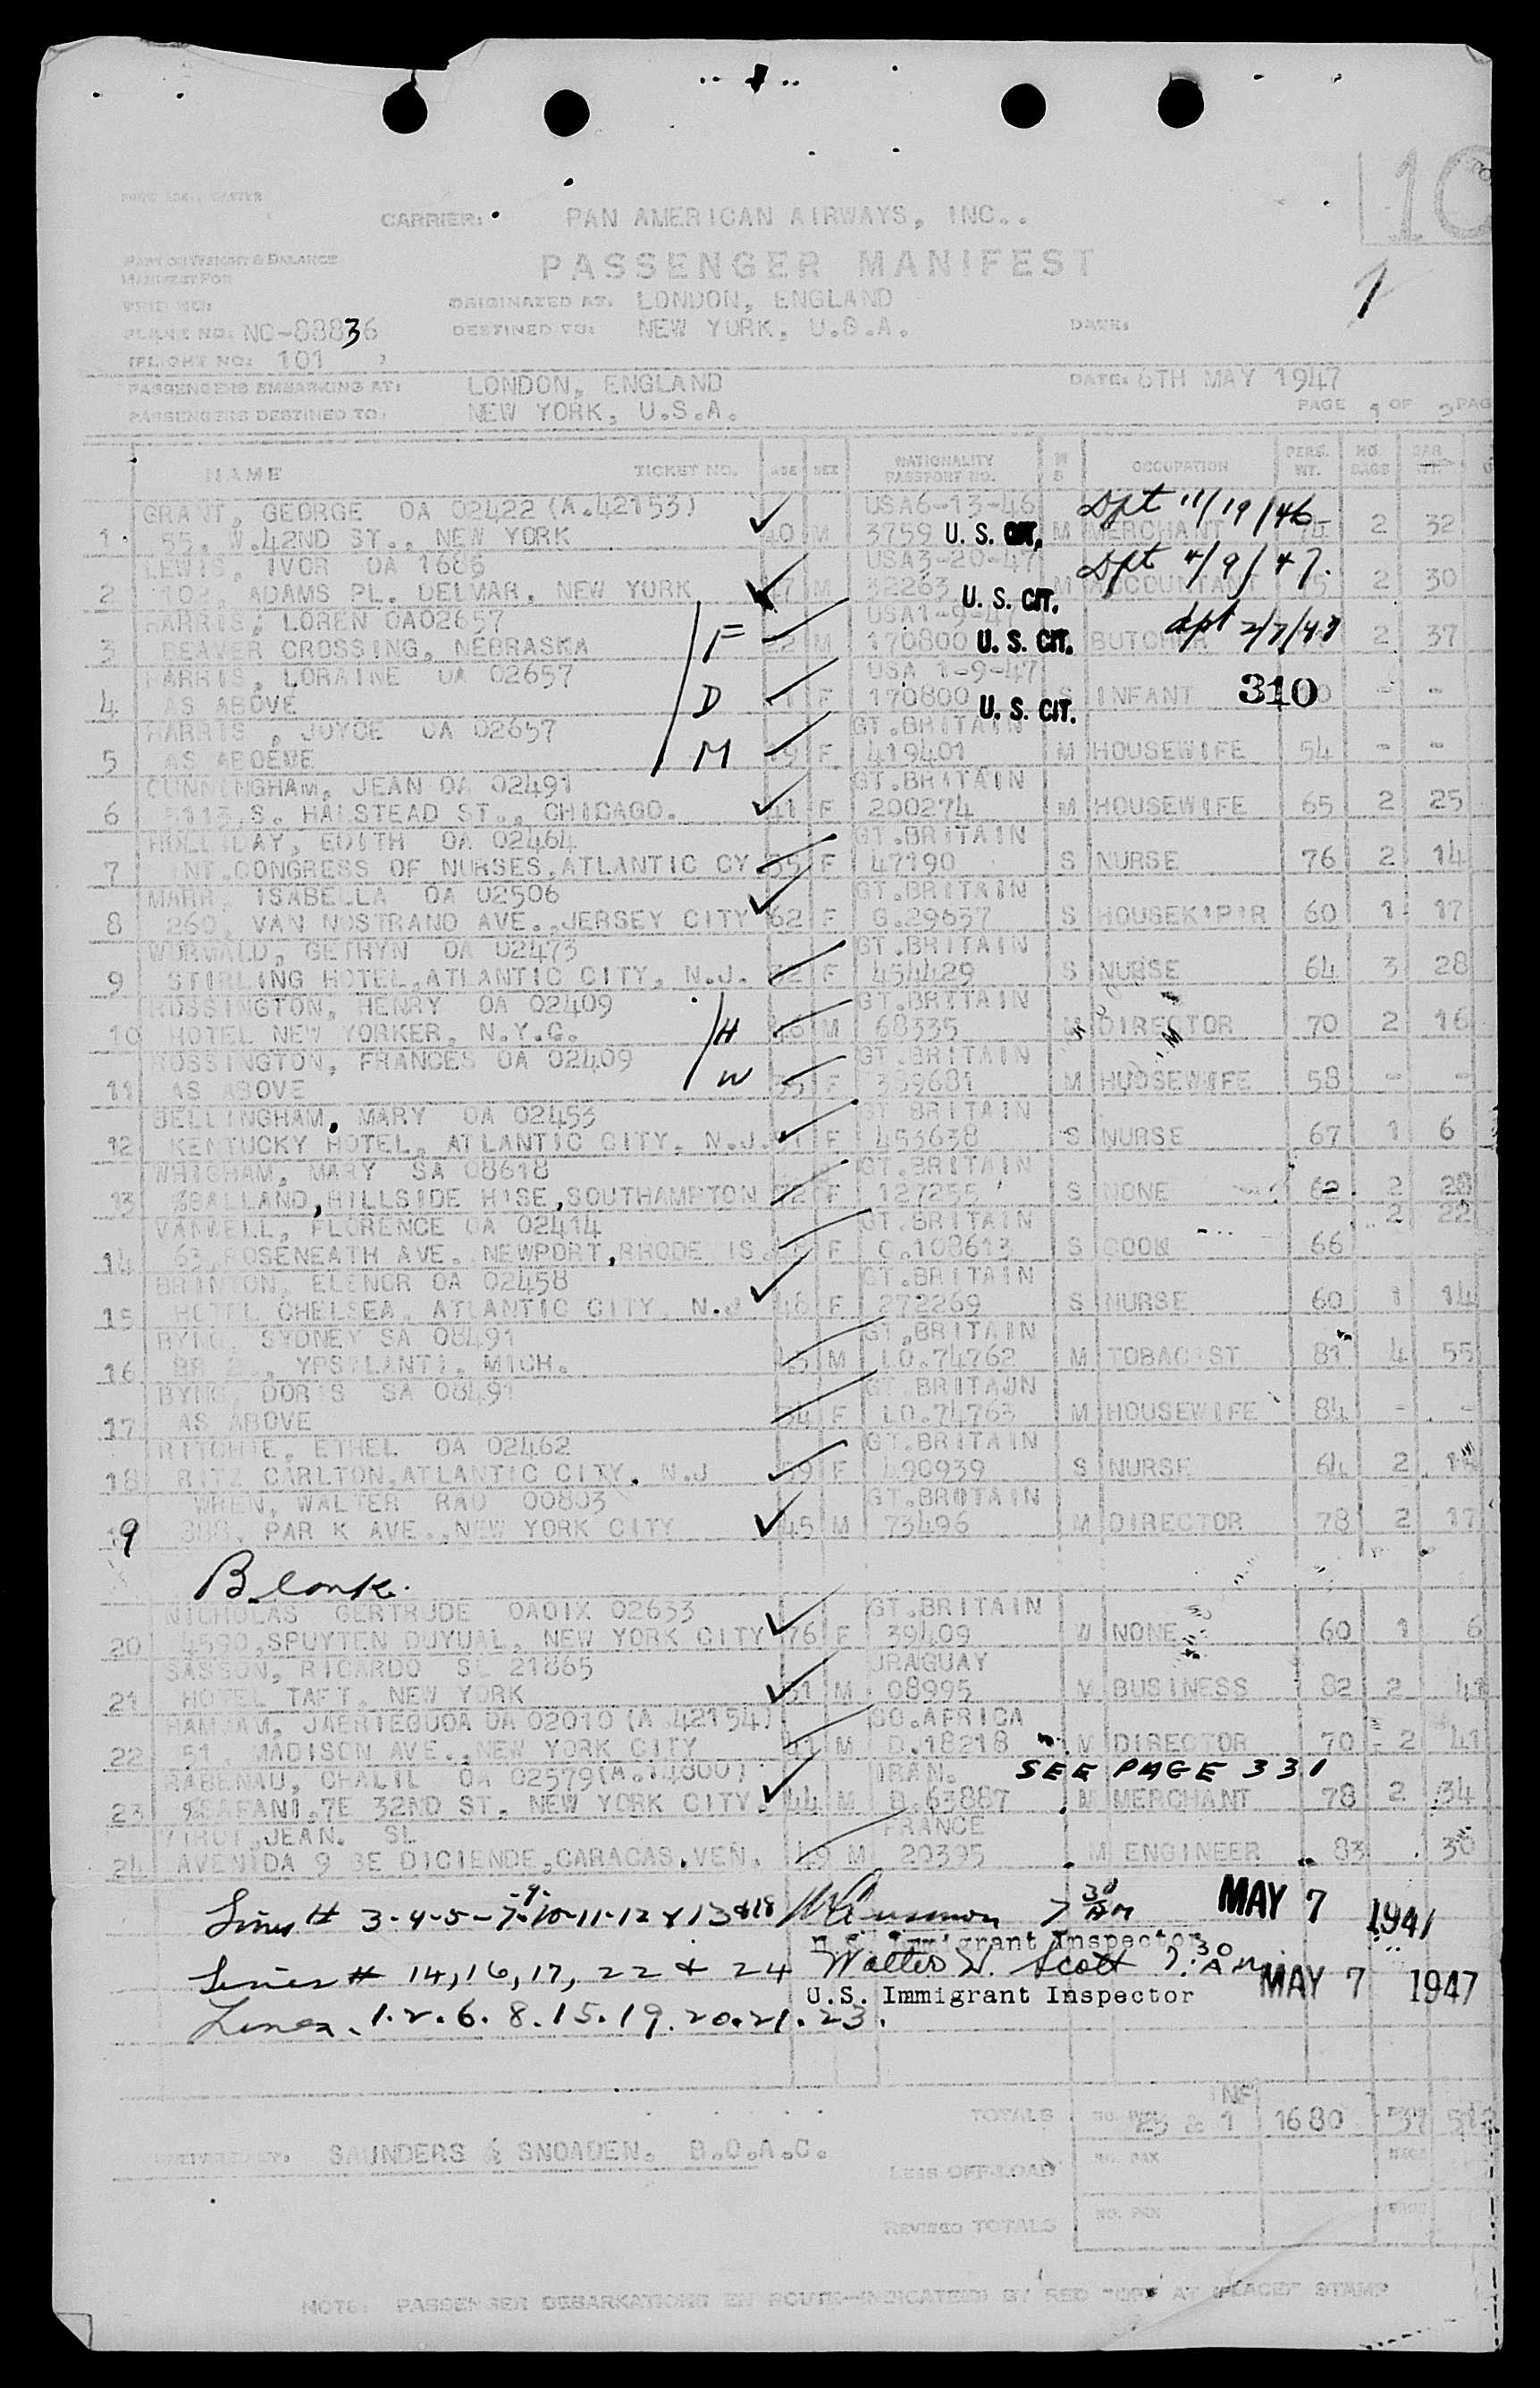 10
CARRIER: PAN AMERICAN AIRWAYS, INC..
PART OF WEIGHT & BALANCE
MANIFEST FOR
PASSENGER MANIFEST
1
TRIP NO:
ORIGINATED AT. LONDON, ENGLAND
PLANE NO: NC-88836
DESTINED TO: NEW YORK, U.S.A.
DATE:
FLIGHT NO: 101
PASSENGERS EMBARKING AT: LONDON, ENGLAND
DATE: 6TH MAY 1947
PASSENGERS DESTINED TO: NEW YORK, U.S.A.
PAGE 1 OF 3 PAG
NAME TICKET NO. AGE SEX NATIONALITY PASSPORT NO. M S OCCUPATION PERS. WT. NO. BAGS BAG WT.
GRANT, GEORGE OA 02422 (A.42153) USA6-13-46 Dpt 11/19/46
1 55, W.42ND ST., NEW YORK 40 M 3759 U. S. CIT. M MERCHANT 74 2 32
LEWIS, IVOR OA 1686 USA3-20-47 Dpt 4/9/47.
2 ADAMS PL. DELMAR, NEW YORK M 32263 U. S. CIT. M ACCOUNTANT 2 30
HARRIS, LOREN OA02657 USA1-9-47 dpt
3 BEAVER CROSSING, NEBRASKA F 22 M 170800 U. S. CIT. BUTCHER 2 37
HARRIS, LORAINE OA 02657 USA 1-9-47
4 AS ABOVE D F 170800 U. S. CIT. S INFANT 310 - -
HARRIS, JOYCE OA 02657 GT.BRITAIN
5 AS ABOEVE M 19 F 419401 M HOUSEWIFE 54 - -
CUNNINGHAM, JEAN OA 02491 GT.BRITAIN
6 5113,S. HALSTEAD ST., CHICAGO. 41 F 200274 M HOUSEWIFE 65 2 25
HOLLIDAY, EDITH OA 02464 GT.BRITAIN
7 INT.CONGRESS OF NURSES,ATLANTIC CY. 35 F 47190 S NURSE 76 2 14
MARR, ISABELLA OA 02506 GT.BRITAIN
8 260, VAN NOSTRAND AVE.,JERSEY CITY 62 F G.29657 S HOUSEK'P'R 60 1 17
WORMALD, GETHYN OA 02473 GT.BRITAIN
9 STIRLING HOTEL,ATLANTIC CITY, N.J. 32 F 454429 S NURSE 64 3 28
ROSSINGTON, HENRY OA 02409 GT.BRITAIN
10 HOTEL NEW YORKER, N.Y.C. H M 68335 M DIRECTOR 70 2 16
ROSSINGTON, FRANCES OA 02409 GT.BRITAIN
11 AS ABOVE W 35 F 389681 M HOUSEWIFE 58 - -
BELLINGHAM, MARY OA 02453 GT BRITAIN
12 KENTUCKY HOTEL, ATLANTIC CITY, N.J. F 453638 S NURSE 67 1 6
WHIGHAM, MARY SA 08618 GT.BRITAIN
13 %BALLAND,HILLSIDE H'SE,SOUTHAMPTON F 127255 S NONE 62 2 20
VANWELL, FLORENCE OA 02414 GT.BRITAIN 2 22
14 63,ROSENEATH AVE. NEWPORT,RHODE IS. F C.108613 S COOK 66
BRINTON, ELENOR OA 02458 GT.BRITAIN
15 HOTEL CHELSEA, ATLANTIC CITY, N.J 46 F 272269 S NURSE 60 1 14
BYNG, SYDNEY SA 08491 GT.BRITAIN
16 YPSILANTI, MICH. 45 M LO.74762 M TOBAC'ST 81 4 55
BYNG, DORIS SA 08491 GT.BRITAIN
17 AS ABOVE F LO.74763 M HOUSEWIFE 84 - -
RITCHIE, ETHEL OA 02462 GT.BRITAIN
18 RITZ CARLTON,ATLANTIC CITY, N.J 39 F 490939 S NURSE 64 2
WREN, WALTER RAD 00803 GT.BRITAIN
19 388, PARK AVE.,NEW YORK CITY 45 M 73496 M DIRECTOR 78 2 17
Blank.
NICHOLAS GERTRUDE OAOIX 02633 GT.BRITAIN
20 4590,SPUYTEN DUYUAL, NEW YORK CITY 76 F 39409 W NONE 60 1 6
SASSON, RICARDO SL 21865 URAGUAY
21 HOTEL TAFT, NEW YORK M 08995 M BUSINESS 82 2 41
OA 02010 (A.42154) SO.AFRICA
22 51, MADISON AVE.,NEW YORK CITY 41 M D.18218 M DIRECTOR 70 2 41
RABENAU, CHALIL OA 02579(A.14800) IRAN. SEE PAGE 331
23 %SAFANI.7E 32ND ST, NEW YORK CITY. 44 M B.63887 M MERCHANT 78 2 34
JEAN. SL FRANCE
24 AVENIDA 9 BE DICIENDE,CARACAS,VEN. 49 M 20395 M ENGINEER 83 30
Lines # 3-4-5-7-9-10-11-12 & 13 & 18 7 30 AM MAY 7 1947
U.S. Immigrant Inspector
Lines # 14,16,17, 22 & 24 Walter W. Scott 7:30 AM MAY 7 1947
U.S. Immigrant Inspector
Lines. 1.2.6. 8.15.19.20.21.23.
TOTALS NO. PAX 23 & 1 INF 1680 37
SAUNDERS & SNOADEN. B.O.A.C.
LESS OFF-LOAD NO. PAX BAGS
REVISED TOTALS NO. PAX BAGS
NOTE: PASSENGER DEBARKATIONS EN ROUTE—INDICATED BY RED "OFF AT (PLACE)" STAMP